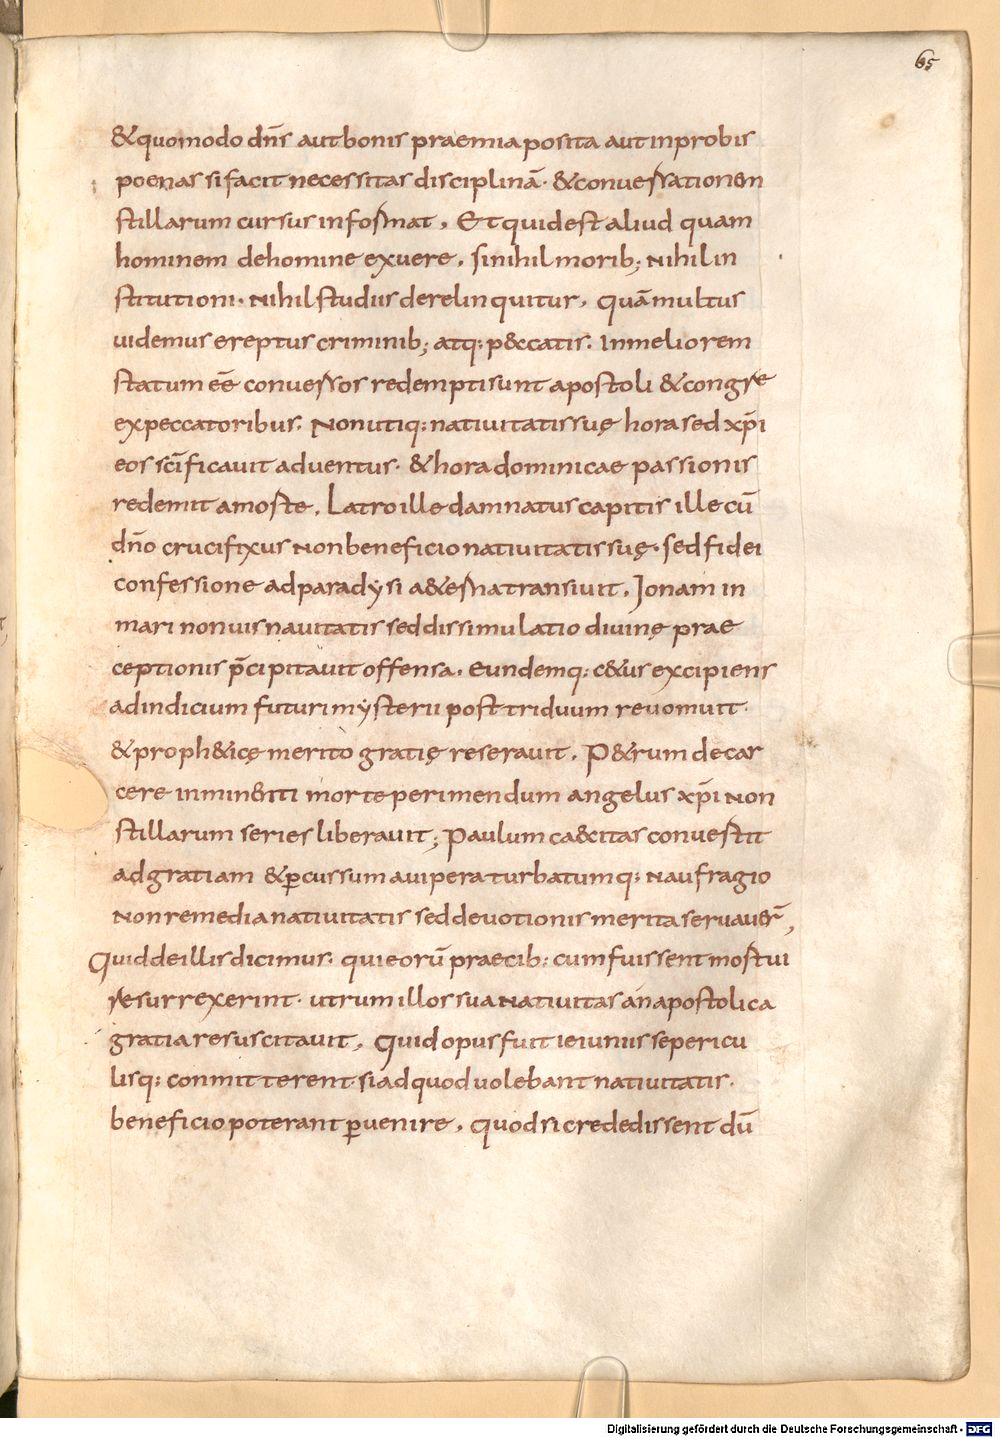 65
&quomodo dn̄s aut bonis praemia posita aut inprobis
poenas si facit necessitas disciplinā· &conuersationem
stillarum cursus informat, Et quid est aliud quam
hominem dehomine exuere, si nihil morib; nihil in
stitutioni· nihil studiis derelinquitur, quā multus
uidemus ereptus criminib; atq; p&catis. In meliorem
statum eē̄ conuersos redempti sunt apostoli &congre
ex peccatoribus. Non utiq; natiuitatis suę hora sed xp̄i
eos sc̄ificauit aduentus· &hora dominicae passionis
redemit a morte, Latro ille damnatus capitis ille cū
dn̄o crucifixus non beneficio natiuitatis suę· sed fidei
confessione ad paradysi a&erna transiuit, Ionam in
mari non uis nauitatis sed dissimulatio diuinę prae
ceptionis p̄cipitauit offensa, eundemq; c&us excipiens
ad indicium futuri mysterii post triduum reuomuit·
&proph&icę merito gratię reserauit, P&rum de car
cere inminenti morte perimendum angelus xp̄i non
stillarum series liberauit; Paulum ca&citas conuertit
ad gratiam &ꝑcussum a uipera turbatumq; naufragio
non remedia natiuitatis sed deuotionis merita seruauer̄,
Quid de illis dicimus· qui eorū praecib; cum fuissent mortui
resurrexerint· utrum illos sua natiuitas an apostolica
gratia resuscitauit, Quid opus fuit ieiuniis se pericu
lisq; conmitterent si ad quod uolebant natiuitatis·
beneficio poterant ꝑuenire, quod si credidissent dū
Digitalisierung gefördert durch die Deutsche Forschungsgemeinschaft - DFG